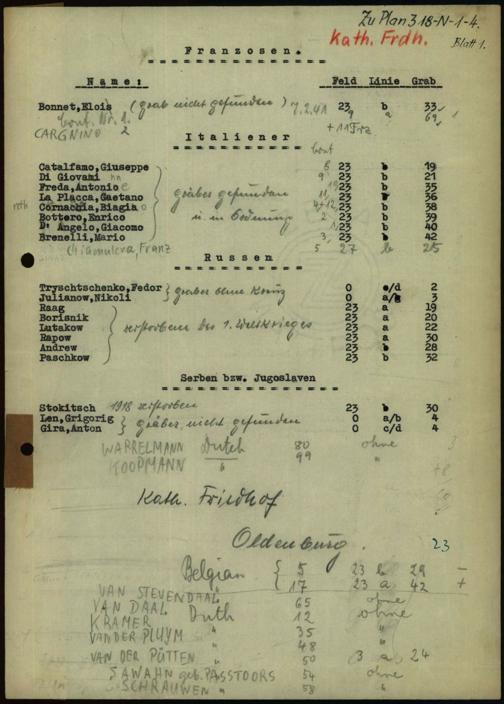 Zu Plan 318-N-1-4.
Kath. Frdh. Blatt 1.
Franzosen.
Name: Feld Linie Grab
Bonnet,Elois (grab nicht gefunden) 7.2.41 23 b 33
CARGNINO 2 9 a 69
+ 11 Frz
Italiener
Catalfamo,Giuseppe 8 23 b 19
Di Giovami 9 23 b 21
Freda,Antonio 23 b 35
La Placca,Gaetano gräber gefunden 11 23 b 36
Cornachia,Biagia 4+12 23 b 38
Bottero,Enrico u. in Ordnung 2 23 b 39
D' Angelo,Giacomo 23 b 40
Brenelli,Mario 3 23 b 42
Franz 5 27 b 25
Russen
Tryschtschenko,Fedor 0 c/d 2
Julianow,Nikoli } gräber ohne Kreuz 0 a/b 3
Raag 23 a 19
Borisnik 23 a 20
Lutakow verstorbene des 1. Weltkrieges 23 a 22
Rapow 23 a 30
Andrew 23 b 28
Paschkow 23 b 32
Serben bzw. Jugoslaven
Stokitsch 1918 verstorben 23 b 30
Len,Grigorig 0 a/b 4
Gira,Anton } gräber nicht gefunden 0 c/d 4
WARRELMANN Dutch 80 ohne 3
KOOPMANN " 99 "
Kath. Friedhof
Oldenburg. 23
Belgian { 5 23 b 29 -
17 23 a 42 +
VAN STEVENDAAL 65 ohne
VAN DAAL Duth 12 ohne
KRAMER " 35 "
VAN DER PLUYM " 48 "
VAN DER PÜTTEN " 50 3 a 24
SAWAHN geb. PASSTOORS 54 ohne
SCHRAUWEN " 58 "